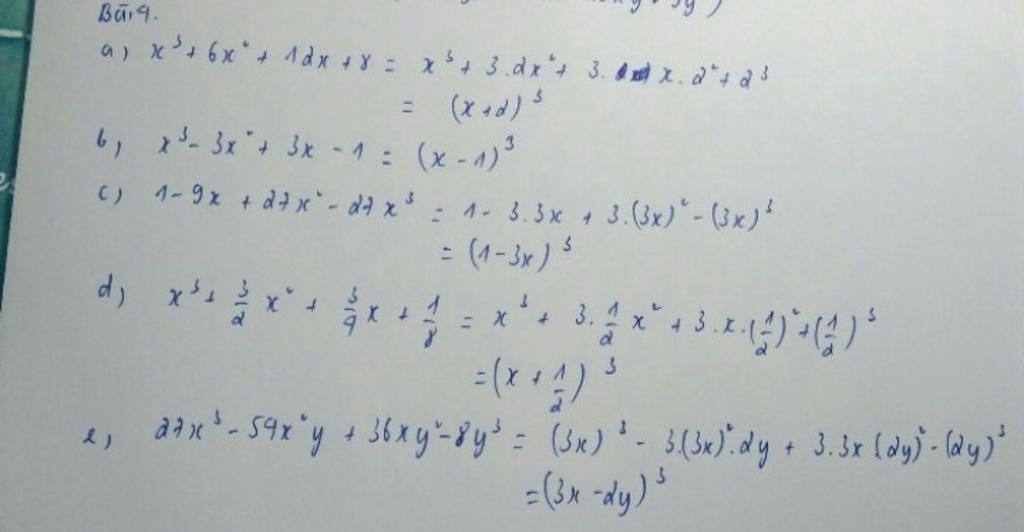 Bài 4.
a) x³ + 6x² + 12x + 8 = x³ + 3.2x² + 3. x.2² + 2³
= (x+2)³
b) x³ - 3x² + 3x - 1 = (x - 1)³
c) 1 - 9x + 27x² - 27x³ = 1 - 3.3x + 3.(3x)² - (3x)³
= (1 - 3x)³
d) x³ + 3/2 x² + 3/4 x + 1/8 = x³ + 3.1/2 x² + 3.x.(1/2)² + (1/2)³
= (x + 1/2)³
e) 27x³ - 54x²y + 36xy² - 8y³ = (3x)³ - 3.(3x)².2y + 3.3x.(2y)² - (2y)³
= (3x - 2y)³